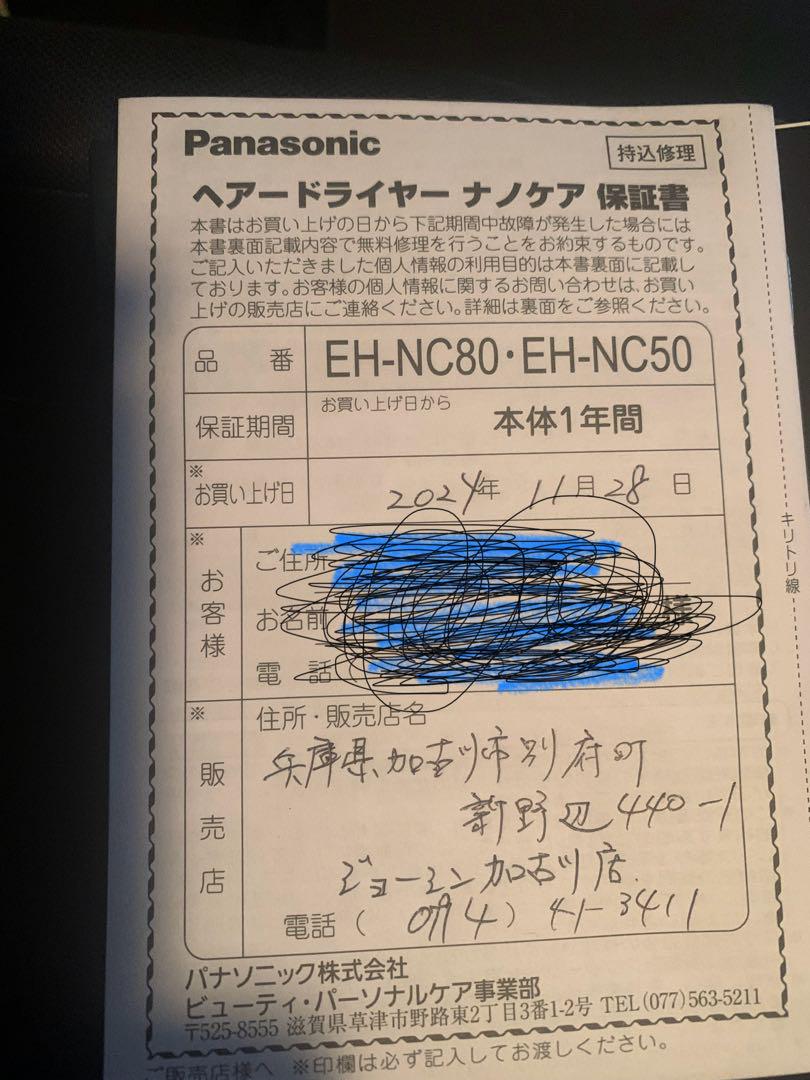 Panasonic
持込修理
ヘアードライヤー ナノケア 保証書
本書はお買い上げの日から下記期間中故障が発生した場合には
本書裏面記載内容で無料修理を行うことをお約束するものです。
ご記入いただきました個人情報の利用目的は本書裏面に記載し
ております。お客様の個人情報に関するお問い合わせは、お買い
上げの販売店にご連絡ください。詳細は裏面をご参照ください。
品番 EH-NC80・EH-NC50
保証期間 お買い上げ日から 本体1年間
※
お買い上げ日 2024年 11月28日
※
お客様
ご住所
お名前 様
電話(
※
販売店
住所・販売店名
兵庫県加古川市別府町
新野辺440-1
ジョーシン加古川店.
電話( 079(4) 41-3411
キリトリ線
パナソニック株式会社
ビューティ・パーソナルケア事業部
〒525-8555 滋賀県草津市野路東2丁目3番1-2号 TEL(077)563-5211
ご販売店様へ ※印欄は必ず記入してお渡しください。